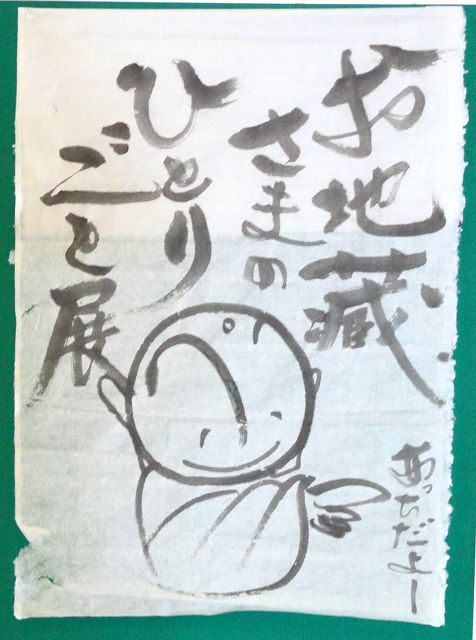 お地蔵
さまの
ひとり
ごと展
あっちだよー